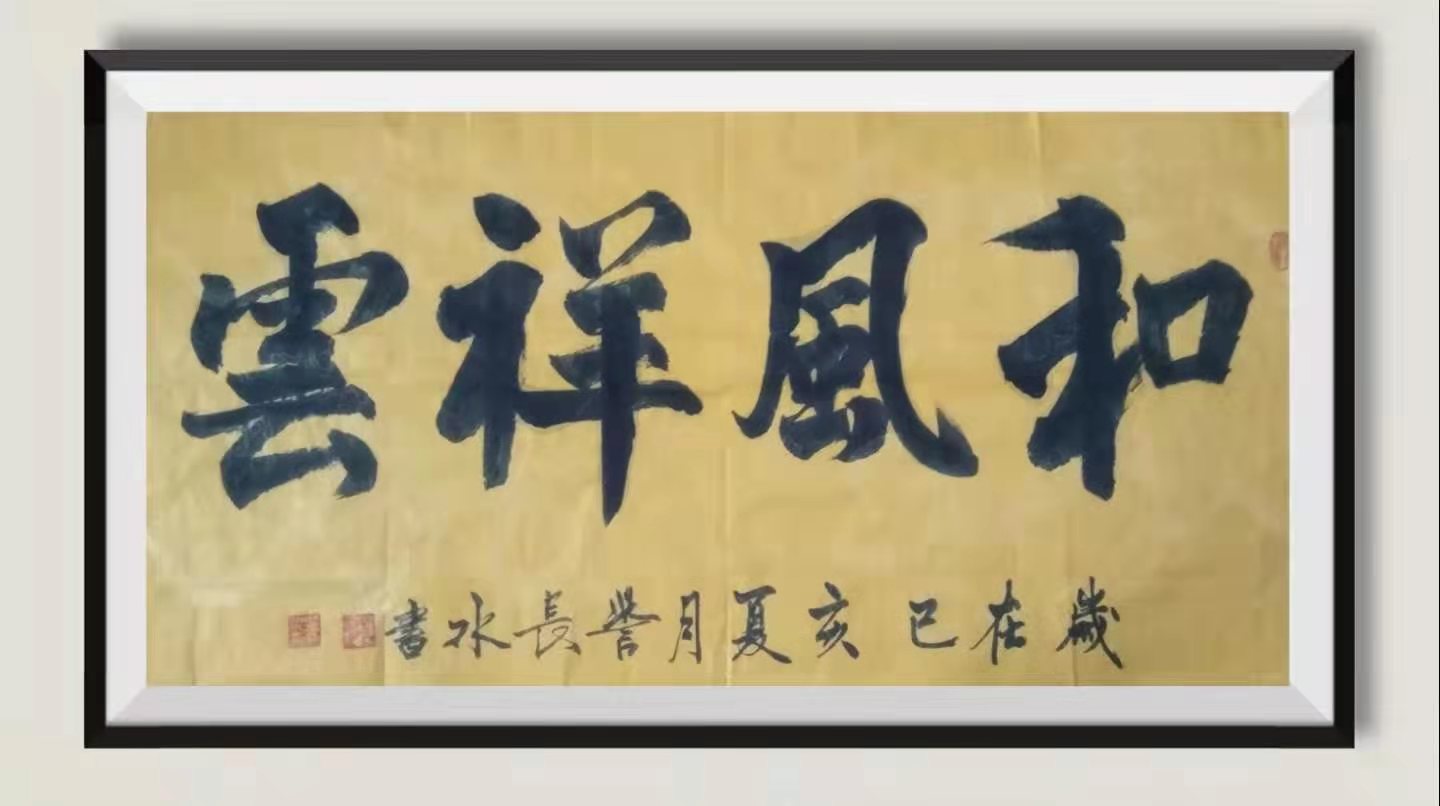 和風祥雲
歲在己亥夏月訾長水書